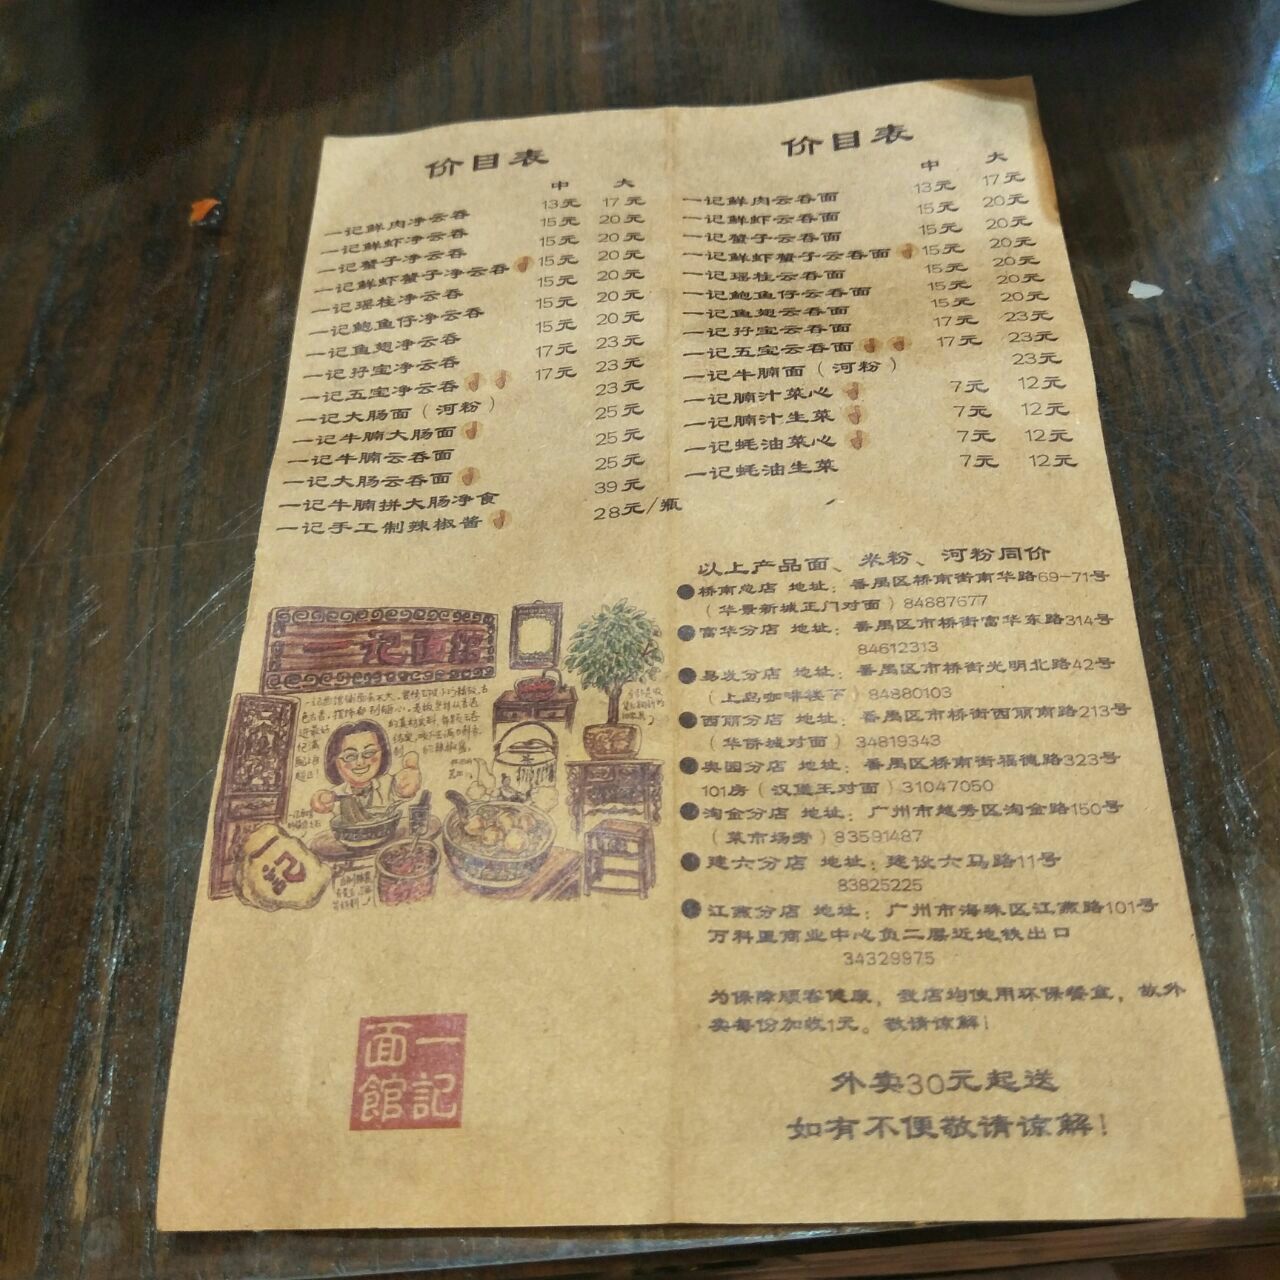 价目表
中 大
一记鲜肉净云吞 13元 17元
一记鲜虾净云吞 15元 20元
一记蟹子净云吞 15元 20元
一记鲜虾蟹子净云吞 15元 20元
一记瑶柱净云吞 15元 20元
一记鲍鱼仔净云吞 15元 20元
一记鱼翅净云吞 15元 20元
一记孖宝净云吞 17元 23元
一记五宝净云吞 17元 23元
一记大肠面（河粉） 23元
一记牛腩大肠面 25元
一记牛腩云吞面 25元
一记大肠云吞面 25元
一记牛腩拼大肠净食 39元
一记手工制辣椒酱 28元/瓶
一记面馆
一记
面館
一記
价目表
中 大
一记鲜肉云吞面 13元 17元
一记鲜虾云吞面 15元 20元
一记蟹子云吞面 15元 20元
一记鲜虾蟹子云吞面 15元 20元
一记瑶柱云吞面 15元 20元
一记鲍鱼仔云吞面 15元 20元
一记鱼翅云吞面 15元 20元
一记孖宝云吞面 17元 23元
一记五宝云吞面 17元 23元
一记牛腩面（河粉） 23元
一记腩汁菜心 7元 12元
一记腩汁生菜 7元 12元
一记蚝油菜心 7元 12元
一记蚝油生菜 7元 12元
以上产品面、米粉、河粉同价
桥南总店 地址：番禺区桥南街南华路69-71号
（华景新城正门对面）84887677
富华分店 地址：番禺区市桥街富华东路314号
84612313
易发分店 地址：番禺区市桥街光明北路42号
（上岛咖啡楼下）84880103
西丽分店 地址：番禺区市桥街西丽南路213号
（华侨城对面）34819343
奥园分店 地址：番禺区桥南街福德路323号
101房（汉堡王对面）31047050
淘金分店 地址：广州市越秀区淘金路150号
（菜市场旁）83591487
建六分店 地址：建设六马路11号
83825225
江燕分店 地址：广州市海珠区江燕路101号
万科里商业中心负二层近地铁出口
34329975
为保障顾客健康，我店均使用环保餐盒，故外
卖每份加收1元。敬请谅解！
外卖30元起送
如有不便敬请谅解！